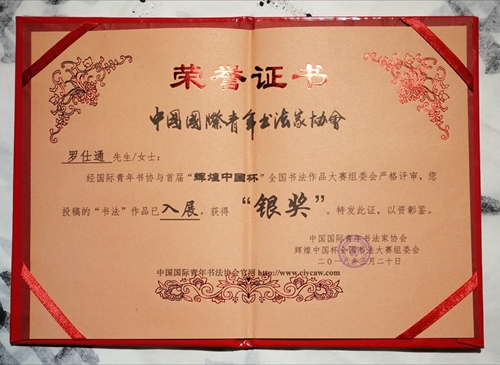 荣誉证书
中国國際青年书法家协會
罗仕通 先生/女士:
经国际青年书协与首届“辉煌中国杯”全国书法作品大赛组委会严格评审，您
投稿的“书法”作品已入展，获得“银奖”。特发此证，以资彰鉴。
中国国际青年书法家协会
辉煌中国杯全国书法大赛组委会
二〇一六年三月二十日
中国国际青年书法协会官网 http://www.ciycaw.com/